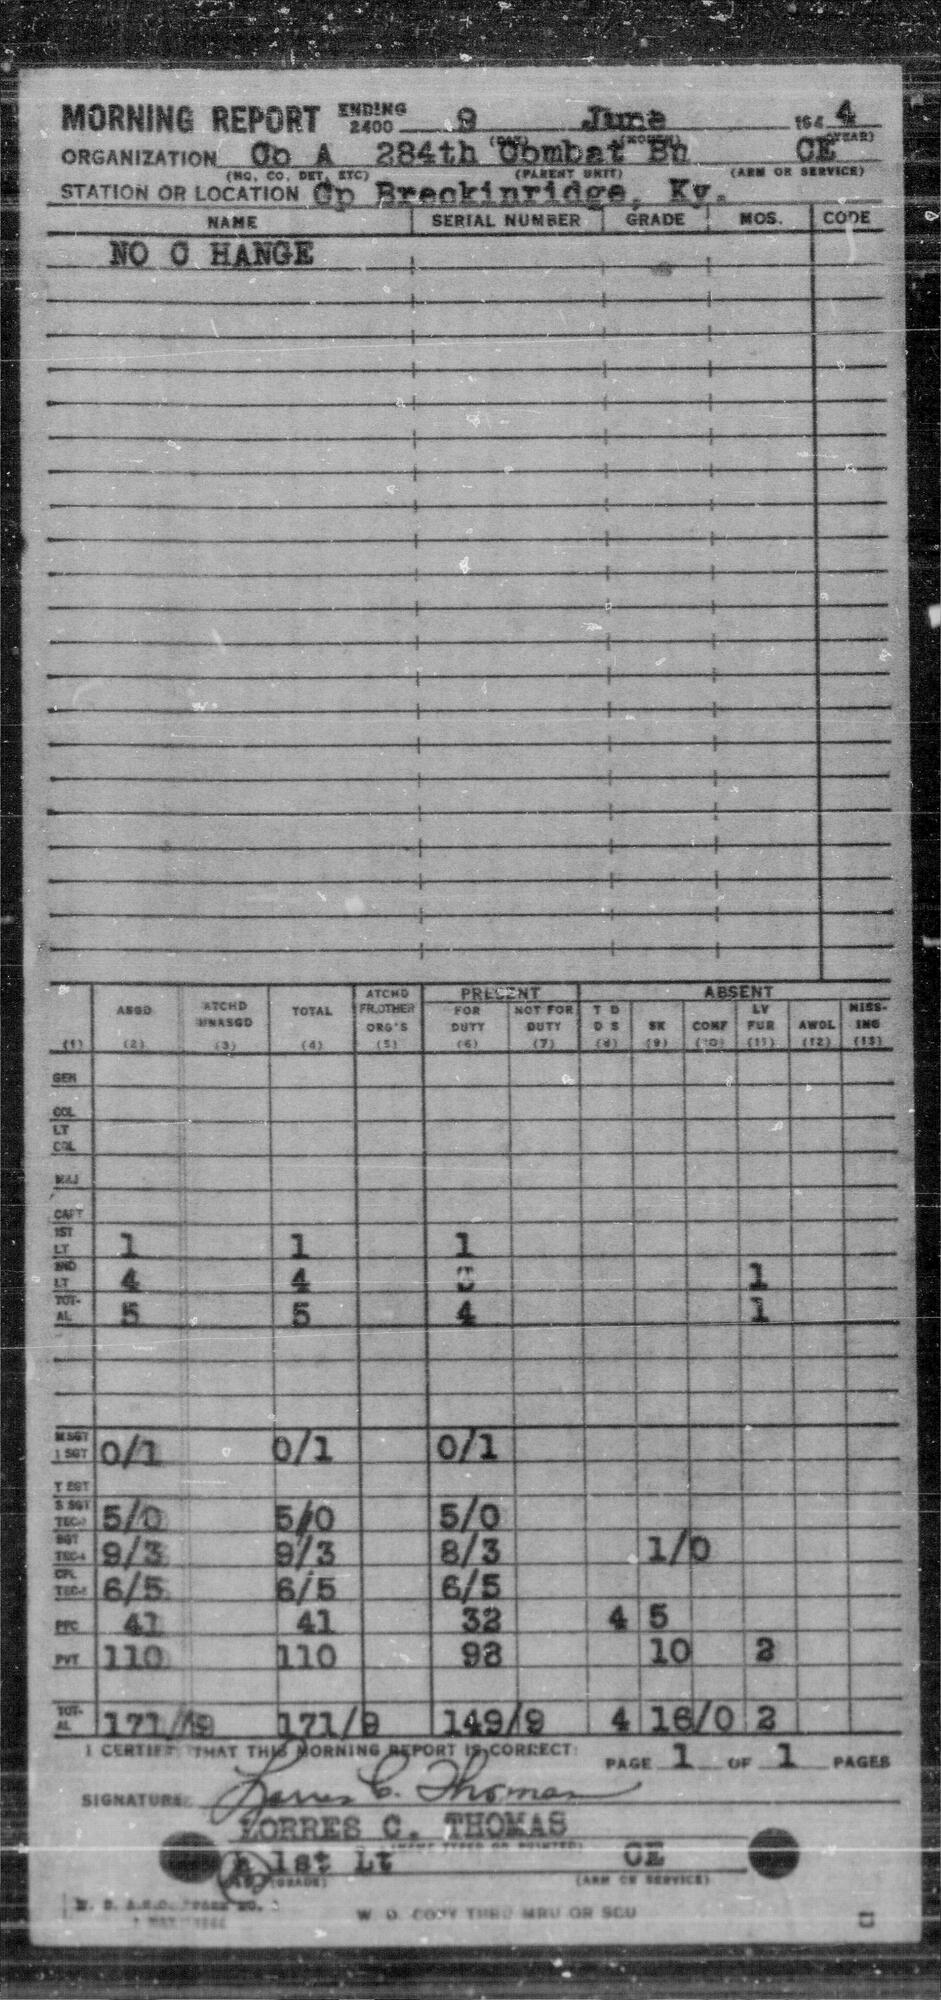 MORNING REPORT ENDING 2400 9 June 1944
(DAY) (MONTH) (YEAR)
ORGANIZATION Co A 284th Combat Bn CE
(HQ, CO, DET, ETC) (PARENT UNIT) (ARM OR SERVICE)
STATION OR LOCATION Cp Breckinridge, Ky.
NAME SERIAL NUMBER GRADE MOS. CODE
NO C HANGE
PRESENT ABSENT
ASGD ATCHD UNASGD TOTAL ATCHD FR.OTHER ORG'S FOR DUTY NOT FOR DUTY T D D S SK CONF LV FUR AWOL MISS-ING
(1) (2) (3) (4) (5) (6) (7) (8) (9) (10) (11) (12) (13)
GEN
COL
LT COL
MAJ
CAPT
1ST LT 1 1 1
2ND LT 4 4 1
TOT-AL 5 5 4 1
M SGT 1 SGT 0/1 0/1 0/1
T SGT
S SGT TEC-3 5/0 5/0 5/0
SGT TEC-4 9/3 9/3 8/3 1/0
CPL TEC-5 6/5 6/5 6/5
PFC 41 41 32 4 5
PVT 110 110 98 10 2
TOT-AL 171/9 171/9 149/9 4 16/0 2
I CERTIFY THAT THIS MORNING REPORT IS CORRECT: PAGE 1 OF 1 PAGES
SIGNATURE Lorres C. Thomas
LORRES C. THOMAS
(NAME TYPED OR PRINTED)
1st Lt CE
(GRADE) (ARM OR SERVICE)
W. D. A.G.O. FORM NO. 1
W. D. COPY THRU MRU OR SCU